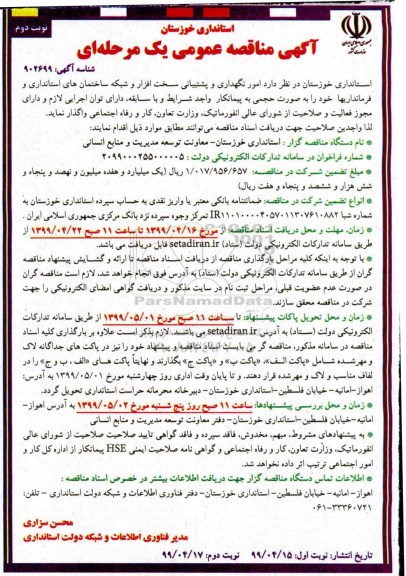 استانداری خوزستان
نوبت دوم
آگهی مناقصه عمومی یک مرحله‌ای
شناسه آگهی: ۹۰۲۶۹۹
استانداری خوزستان در نظر دارد امور نگهداری و پشتیبانی سخت افزار و شبکه ساختمان های استانداری و
فرمانداریها خود را به صورت حجمی به پیمانکار واجد شرایط و با سابقه، دارای توان اجرایی لازم و دارای
مجوز فعالیت و صلاحیت از شورای عالی انفورماتیک، وزارت تعاون، کار و رفاه اجتماعی واگذار نماید.
لذا واجدین صلاحیت جهت دریافت اسناد مناقصه می‌توانند مطابق موارد ذیل اقدام نمایند:
* نام دستگاه مناقصه گزار: استانداری خوزستان- معاونت توسعه مدیریت و منابع انسانی
* شماره فراخوان در سامانه تدارکات الکترونیکی دولت:
* مبلغ تضمین شرکت در مناقصه: ۱/۰۱۷/۹۵۶/۶۵۷ ریال (یک میلیارد و هفده میلیون و نهصد و پنجاه و
شش هزار و ششصد و پنجاه و هفت ریال)
* انواع تضمین شرکت در مناقصه: ضمانتنامه بانکی معتبر یا واریز نقدی به حساب سپرده استانداری خوزستان به
شماره شبا تمرکز وجوه سپرده نزد بانک مرکزی جمهوری اسلامی ایران.
* زمان، مهلت و محل دریافت اسناد مناقصه: از مورخ ۱۳۹۹/۰۴/۱۶ تا ساعت ۱۱ صبح ۱۳۹۹/۰۴/۲۲ از
طریق سامانه تدارکات الکترونیکی دولت (ستاد) setadiran.ir قابل دریافت می باشد.
* با توجه به اینکه کلیه مراحل بارگذاری مناقصه از دریافت اسناد مناقصه تا ارائه و گشایش پیشنهاد مناقصه
گران از طریق سامانه تدارکات الکترونیکی دولت (ستاد) به آدرس فوق انجام خواهد شد، لازم است مناقصه گران
در صورت عدم عضویت قبلی، مراحل ثبت نام در سایت مذکور و دریافت گواهی امضای الکترونیکی را جهت
شرکت در مناقصه محقق سازند.
* زمان و محل تحویل پاکات پیشنهاد: تا ساعت ۱۱ صبح مورخ ۱۳۹۹/۰۵/۰۱ از طریق سامانه تدارکات
الکترونیکی دولت (ستاد) به آدرس setadiran.ir می باشند. لازم بذکر است علاوه بر بارگذاری کلیه اسناد
مناقصه در سامانه مذکور، مناقصه گر می بایست اسناد مناقصه و پیشنهاد خود را نیز در پاکت های جداگانه لاک
و مهرشده شامل «پاکت الف»، «پاکت ب» و «پاکت ج» بگذارند و نهایتاً پاکت های «الف ، ب و ج» را در
لفاف مناسب و لاک و مهرشده قرار دهند. و تا پایان وقت اداری روز چهارشنبه مورخ ۱۳۹۹/۰۵/۰۱ به آدرس:
اهواز-امانیه- خیابان فلسطین-استانداری خوزستان- دبیرخانه محرمانه حراست استانداری تحویل گردد.
* زمان و محل بررسی پیشنهادها: ساعت ۱۱ صبح روز پنج شنبه مورخ ۱۳۹۹/۰۵/۰۲ به آدرس اهواز-
امانیه-خیابان فلسطین-استانداری خوزستان- دفتر معاونت توسعه مدیریت و منابع انسانی
* به پیشنهادهای مشروط، مبهم، مخدوش، فاقد سپرده و فاقد گواهی تایید صلاحیت صلاحیت از شورای عالی
انفورماتیک، وزارت تعاون، کار و رفاه اجتماعی و گواهی نامه صلاحیت ایمنی HSE پیمانکار از اداره کل کار و
امور اجتماعی ترتیب اثر داده نخواهد شد.
* اطلاعات تماس دستگاه مناقصه گزار جهت دریافت اطلاعات بیشتر در خصوص اسناد مناقصه:
اهواز- امانیه- خیابان فلسطین- استانداری خوزستان- دفتر فناوری اطلاعات و شبکه دولت استانداری - تلفن:
۰۶۱-۳۳۳۶۰۷۲۱
محسن سزاری
مدیر فناوری اطلاعات و شبکه دولت استانداری
تاریخ انتشار: نوبت اول: ۹۹/۰۴/۱۵ نوبت دوم: ۹۹/۰۴/۱۷
ParsNamadData